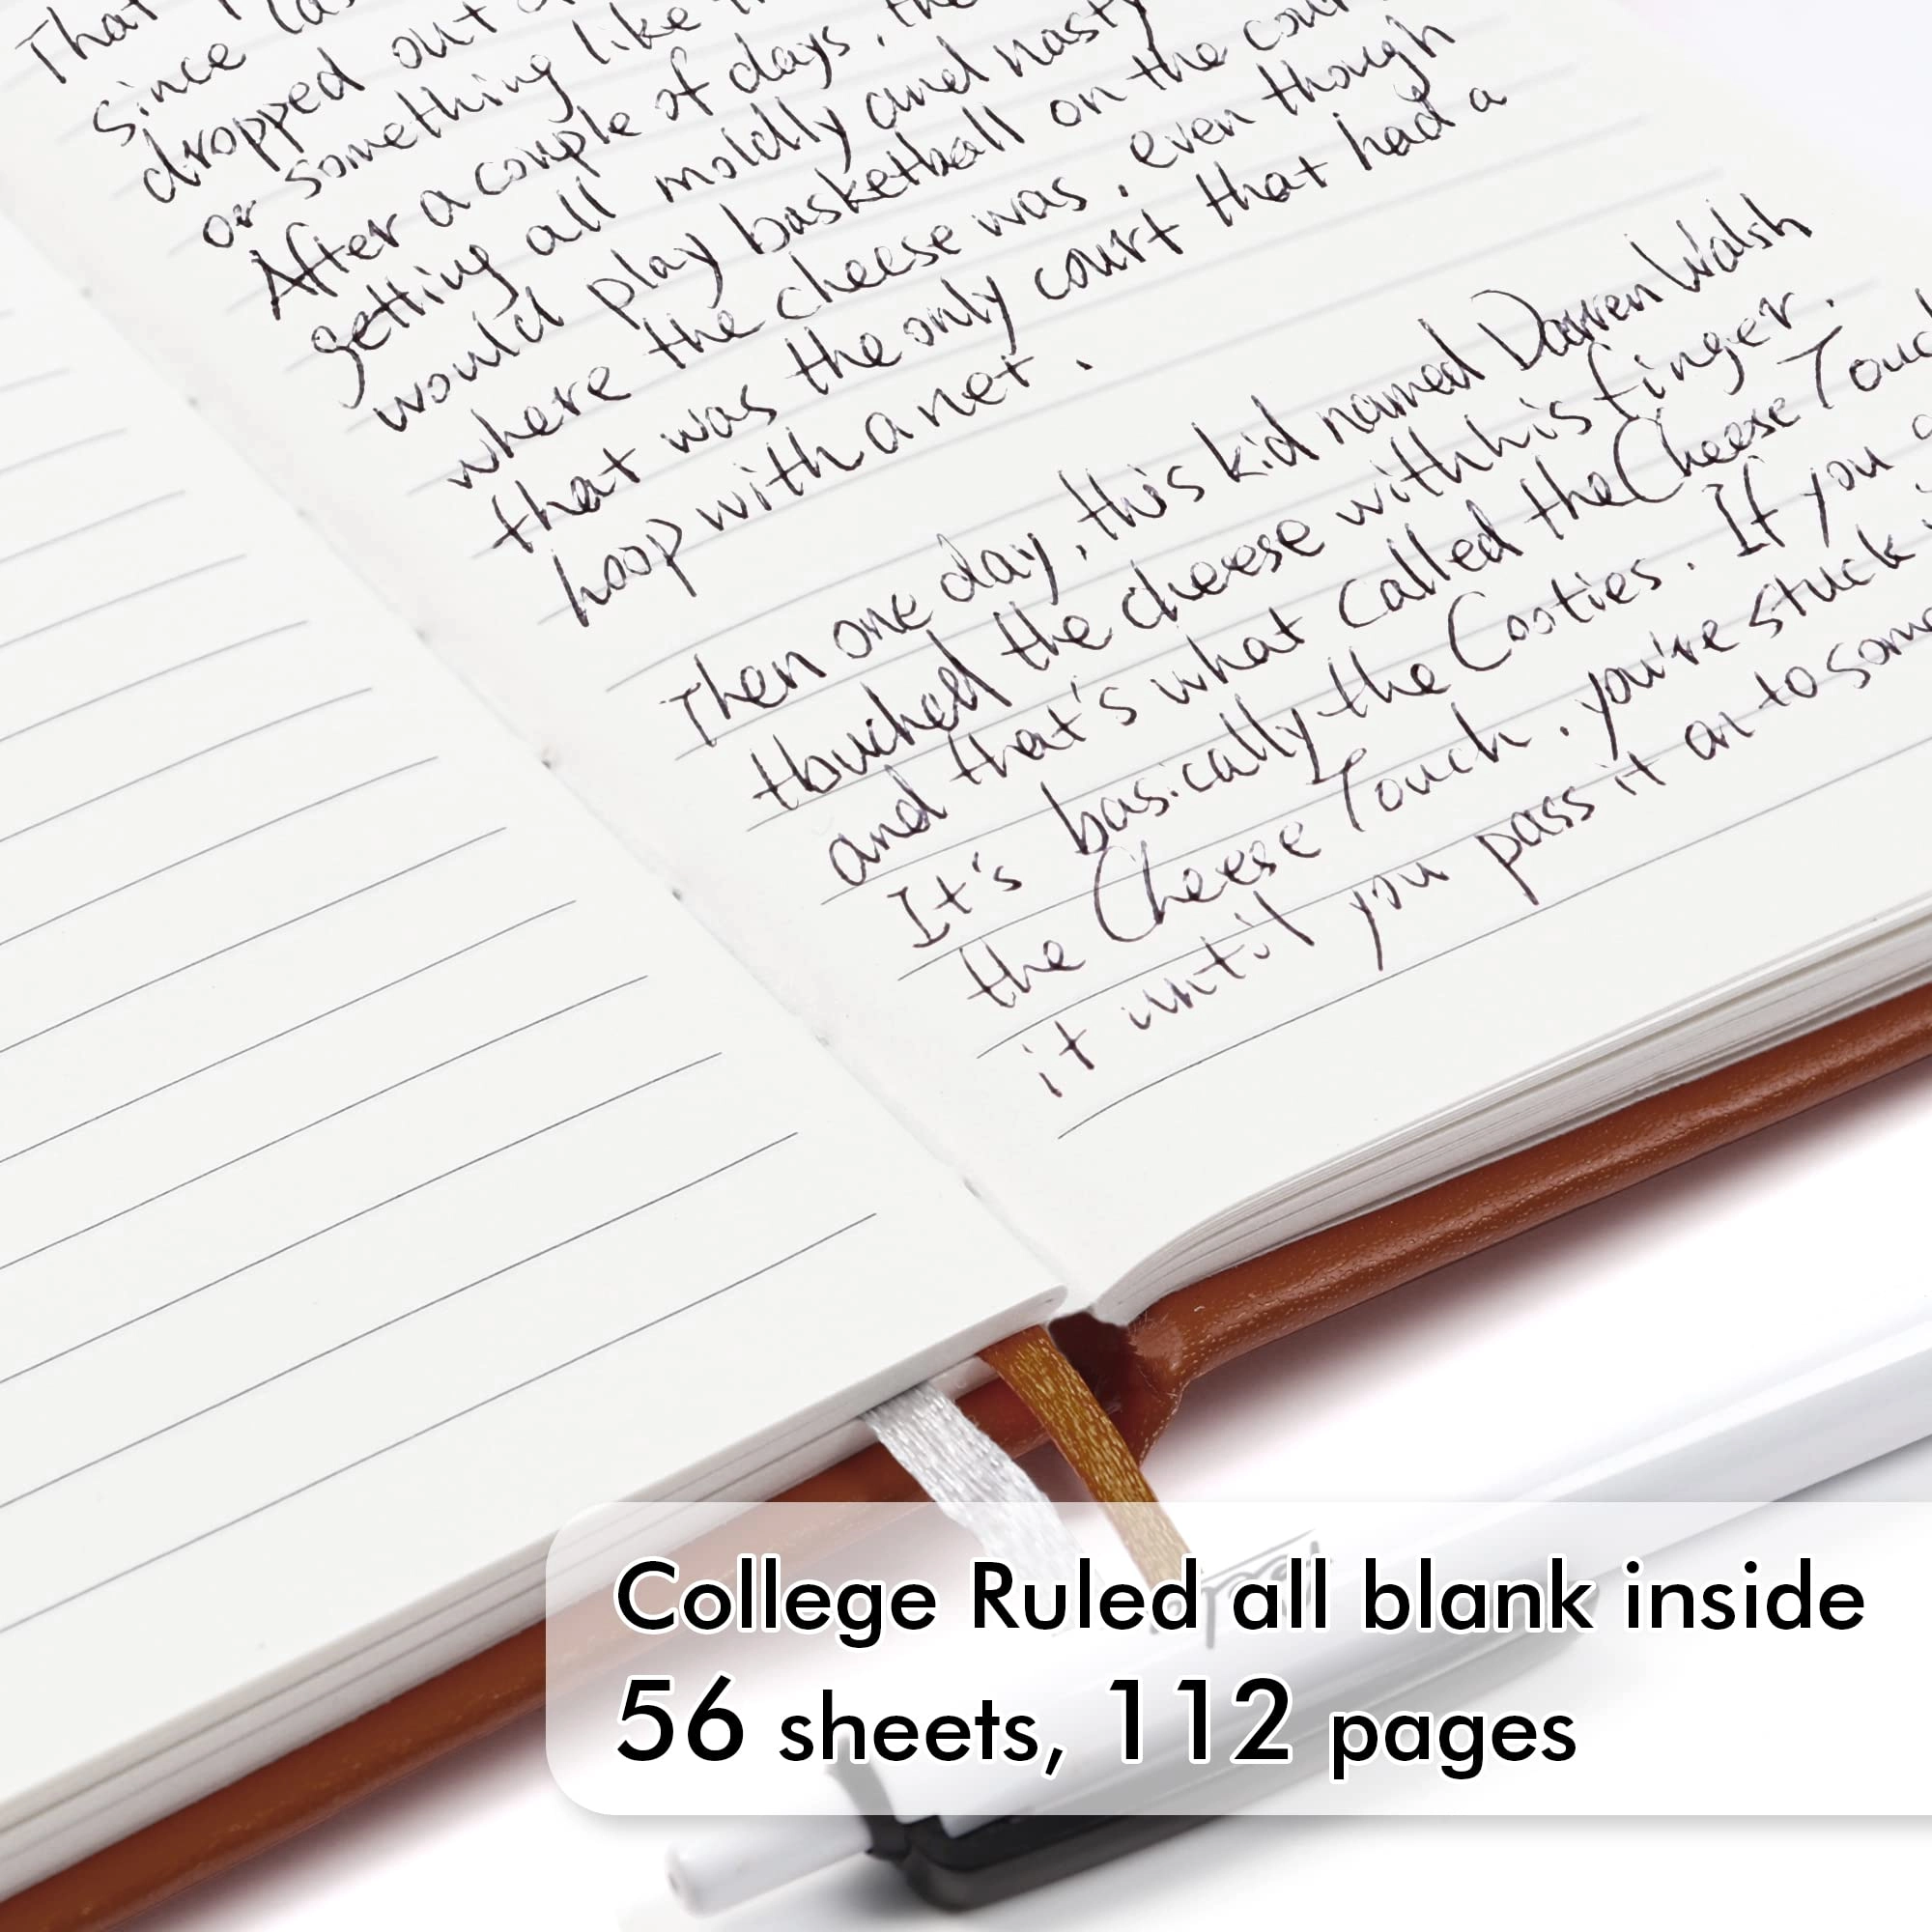 That
since
dropped out
or something like
After a couple of days, the
getting all moldly and nasty
would play basketball on the
where the cheese was, even though
that was the only court that had a
hoop with a net.
Then one day, this kid named Darren Walsh
touched the cheese with his finger.
and that's what called the Cheese Touch
It's basically the Cooties. If you
the Cheese Touch, you're stuck
it until you pass it on to some
College Ruled all blank inside
56 sheets, 112 pages